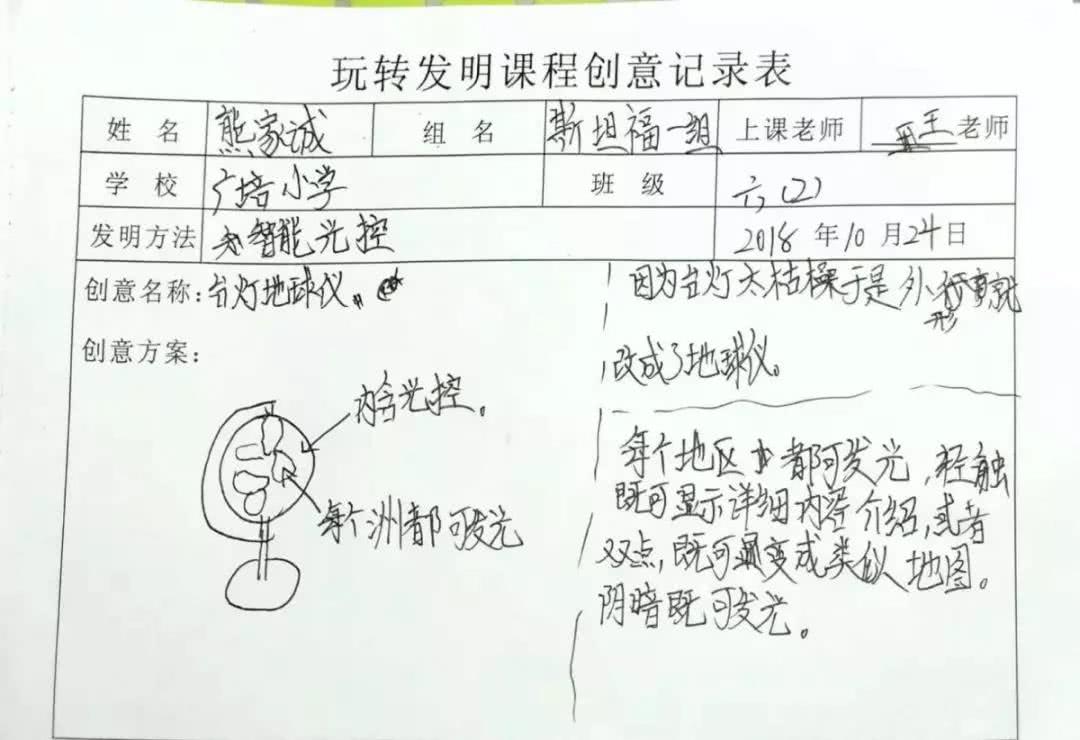 玩转发明课程创意记录表
姓 名 熊家诚 组 名 斯坦福一组 上课老师 王老师
学 校 广培小学 班 级 六(2)
发明方法 智能光控 2018年10月24日
创意名称:台灯地球仪。
创意方案:
内含光控。
每个洲都可发光
因为台灯太枯橾于是外形就
改成了地球仪。
每个地区都可发光,轻触
既可显示详细内容介绍,或者
双点,既可变成类似地图。
阴暗既可发光。